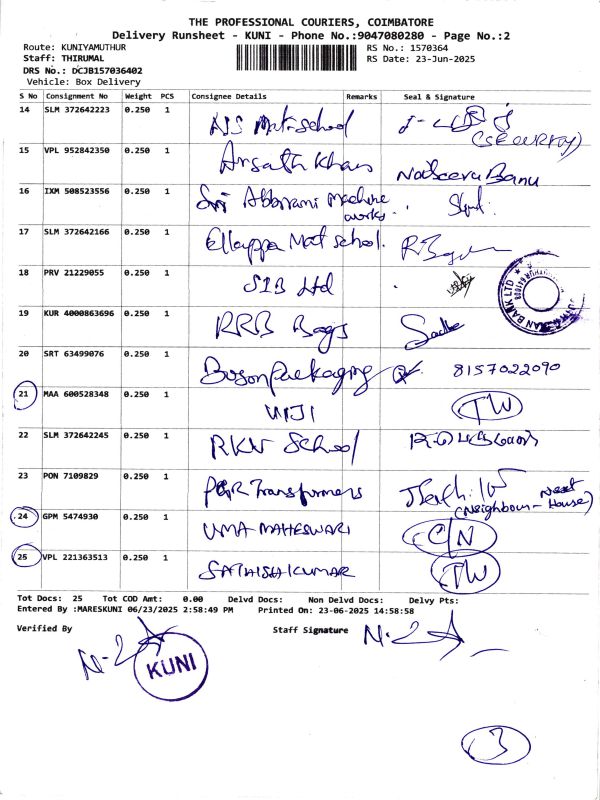 THE PROFESSIONAL COURIERS, COIMBATORE
Delivery Runsheet - KUNI - Phone No.:9047080280 - Page No.:2
Route: KUNIYAMUTHUR RS No.: 1570364
Staff: THIRUMAL RS Date: 23-Jun-2025
DRS No.: DCJB157036402
Vehicle: Box Delivery
S No Consignment No Weight PCS Consignee Details Remarks Seal & Signature
14 SLM 372642223 0.250 1 AJS Mat-school
(SECURITY)
15 VPL 952842350 0.250 1 Ansath Khan Nabeera Banu
16 IXM 508523556 0.250 1 Sri Abbirami Machine
works
17 SLM 372642166 0.250 1 Ellappa Mat school.
18 PRV 21229055 0.250 1 SIB Ltd BANK LTD
19 KUR 4000863696 0.250 1 RRB Bags
20 SRT 63499076 0.250 1 Boson Packaging 8157022090
21 MAA 600528348 0.250 1 VIJI TW
22 SLM 372642245 0.250 1 RKV School
23 PON 7109829 0.250 1 PGR Transformers
(Neighbour- Next House)
24 GPM 5474930 0.250 1 UMA MAHESWARI C/N
25 VPL 221363513 0.250 1 SATHISHKUMAR TW
Tot Docs: 25 Tot COD Amt: 0.00 Delvd Docs: Non Delvd Docs: Delvy Pts:
Entered By :MARESKUNI 06/23/2025 2:58:49 PM Printed On: 23-06-2025 14:58:58
Verified By Staff Signature
KUNI
3